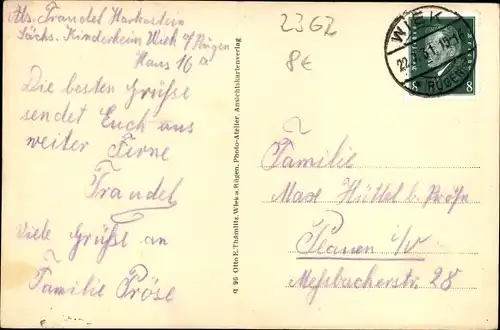 Abs. Traudel Harkostein
Sächs. Kinderheim Wiek a/Rügen
Haus 16a
Die besten Grüße
sendet Euch aus
weiter Ferne
Traudel
Viele Grüße an
Familie Pröse
q 96 Otto E. Thämlitz, Wiek a. Rügen, Photo-Atelier, Ansichtskartenverlag
23GZ
8€
WIEK
(RÜGEN)
8
8
Familie
Max Hüttel b. Pröse
Plauen i/V
Meßbacherstr. 28